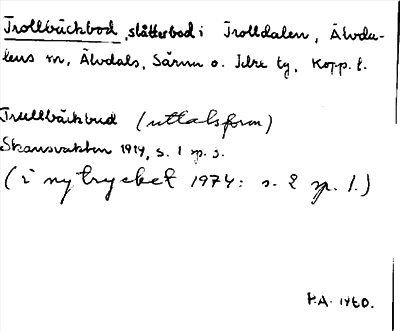 Trollbäckbod, slåtterbod i Trolldalen, Älvda-
lens sn, Älvdals, Särna o. Idre tg, Kopp. l.
Trullbäkbud (uttalsform)
Skansvakten 1914, s. 1 sp. 3.
(i nytrycket 1974: s. 2 sp. 1.)
P.A. 1960.